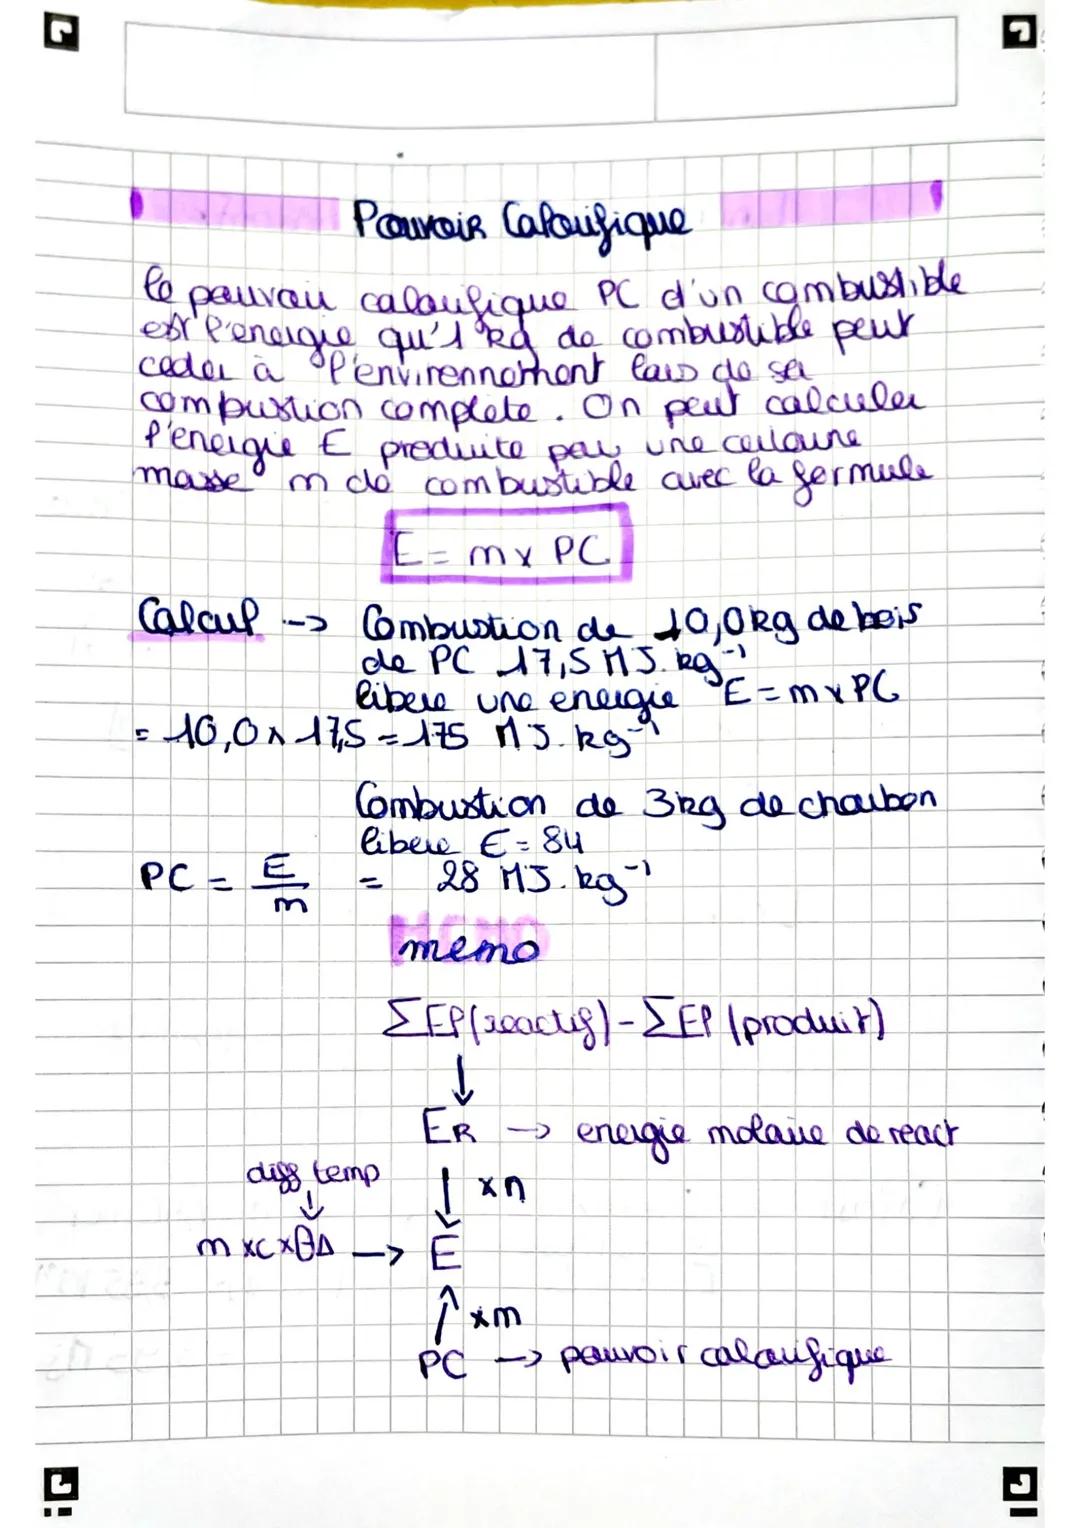 Pouvoir Calorifique
le pouvoir calorifique PC d'un combustible
est l'energie qu'1 kg de combustible peut
ceder à l'environnement lors de sa
combustion complete. On peut calculer
l'énergie E produite par une certaine
masse m de combustible avec la formule
E = m x PC
Calcul --> Combustion de 10,0kg de bois
de PC 17,5 MJ.kg⁻¹
libere une energie E = m x PC
= 10,0 x 17,5 = 175 MJ.kg⁻¹
Combustion de 3kg de charbon
libere E = 84
PC = E/m = 28 MJ.kg⁻¹
MEMO
memo
ΣEP(reactif) - ΣEP (produit)
↓
ER → energie molaire de react
diff temp ↓ xn
↓
m xc xθΔ → E
↑ xm
PC → pouvoir calorifique